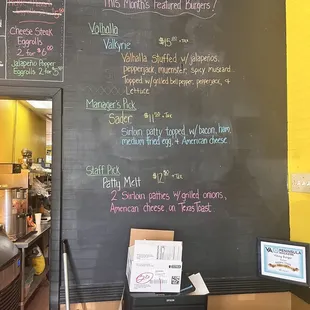 This Month's Featured Burgers!
Cheese Steak
Eggrolls
2 for $6.00
Jalapeño Cheese
Eggrolls
2 for $5.00
Valhalla
Valkyrie $15.00 + Tax
Valhalla Stuffed w/ jalapeños,
pepperjack, muenster, spicy mustard.
Topped w/ grilled bell pepper, pepperjack, &
Lettuce
Manager's Pick
Sader $11.50 + Tax
Sirloin patty topped w/ bacon, ham,
medium fried egg, & American cheese.
Staff Pick
Patty Melt $12.00 + Tax
2 Sirloin patties w/ grilled onions,
American cheese, on Texas Toast.